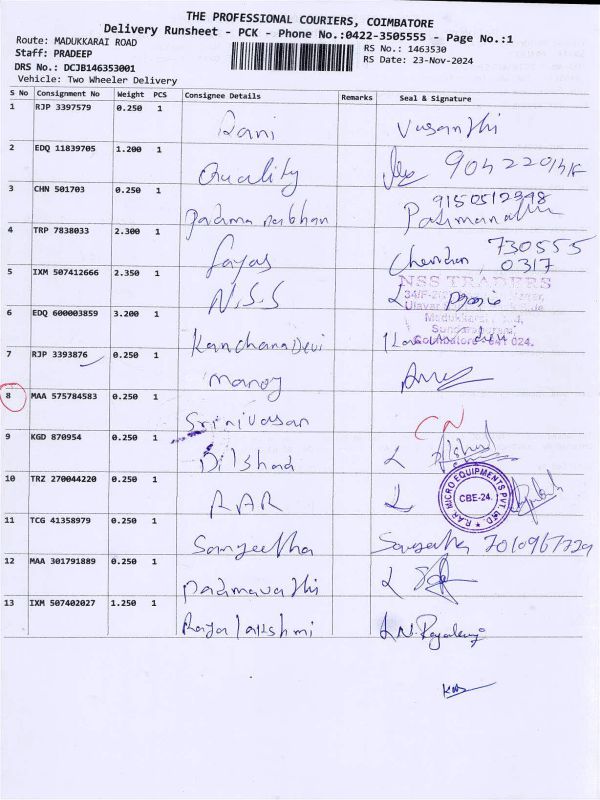 THE PROFESSIONAL COURIERS, COIMBATORE
Delivery Runsheet - PCK - Phone No.:0422-3505555 - Page No.:1
Route: MADUKKARAI ROAD
RS No.: 1463530
Staff: PRADEEP
RS Date: 23-Nov-2024
DRS No.: DCJB146353001
Vehicle: Two Wheeler Delivery
S No Consignment No Weight PCS Consignee Details Remarks Seal & Signature
1 RJP 3397579 0.250 1 Rani Vasanthi
2 EDQ 11839705 1.200 1 Quality
3 CHN 501703 0.250 1 Padmanabhan 9150512348
4 TRP 7838033 2.300 1 730555
0317
5 IXM 507412666 2.350 1 N.S.S NSS TRADERS
6 EDQ 600003859 3.200 1 Kanchana Devi
Coimbatore - 641 024.
7 RJP 3393876 0.250 1 Manoj
8 MAA 575784583 0.250 1 Srinivasan CN
9 KGD 870954 0.250 1 Dilshad
10 TRZ 270044220 0.250 1 RAR R.AR MICRO EQUIPMENTS PVT. LTD. CBE-24.
11 TCG 41358979 0.250 1 Sangeetha
12 MAA 301791889 0.250 1 Padmavathi
13 IXM 507402027 1.250 1 Rajalakshmi